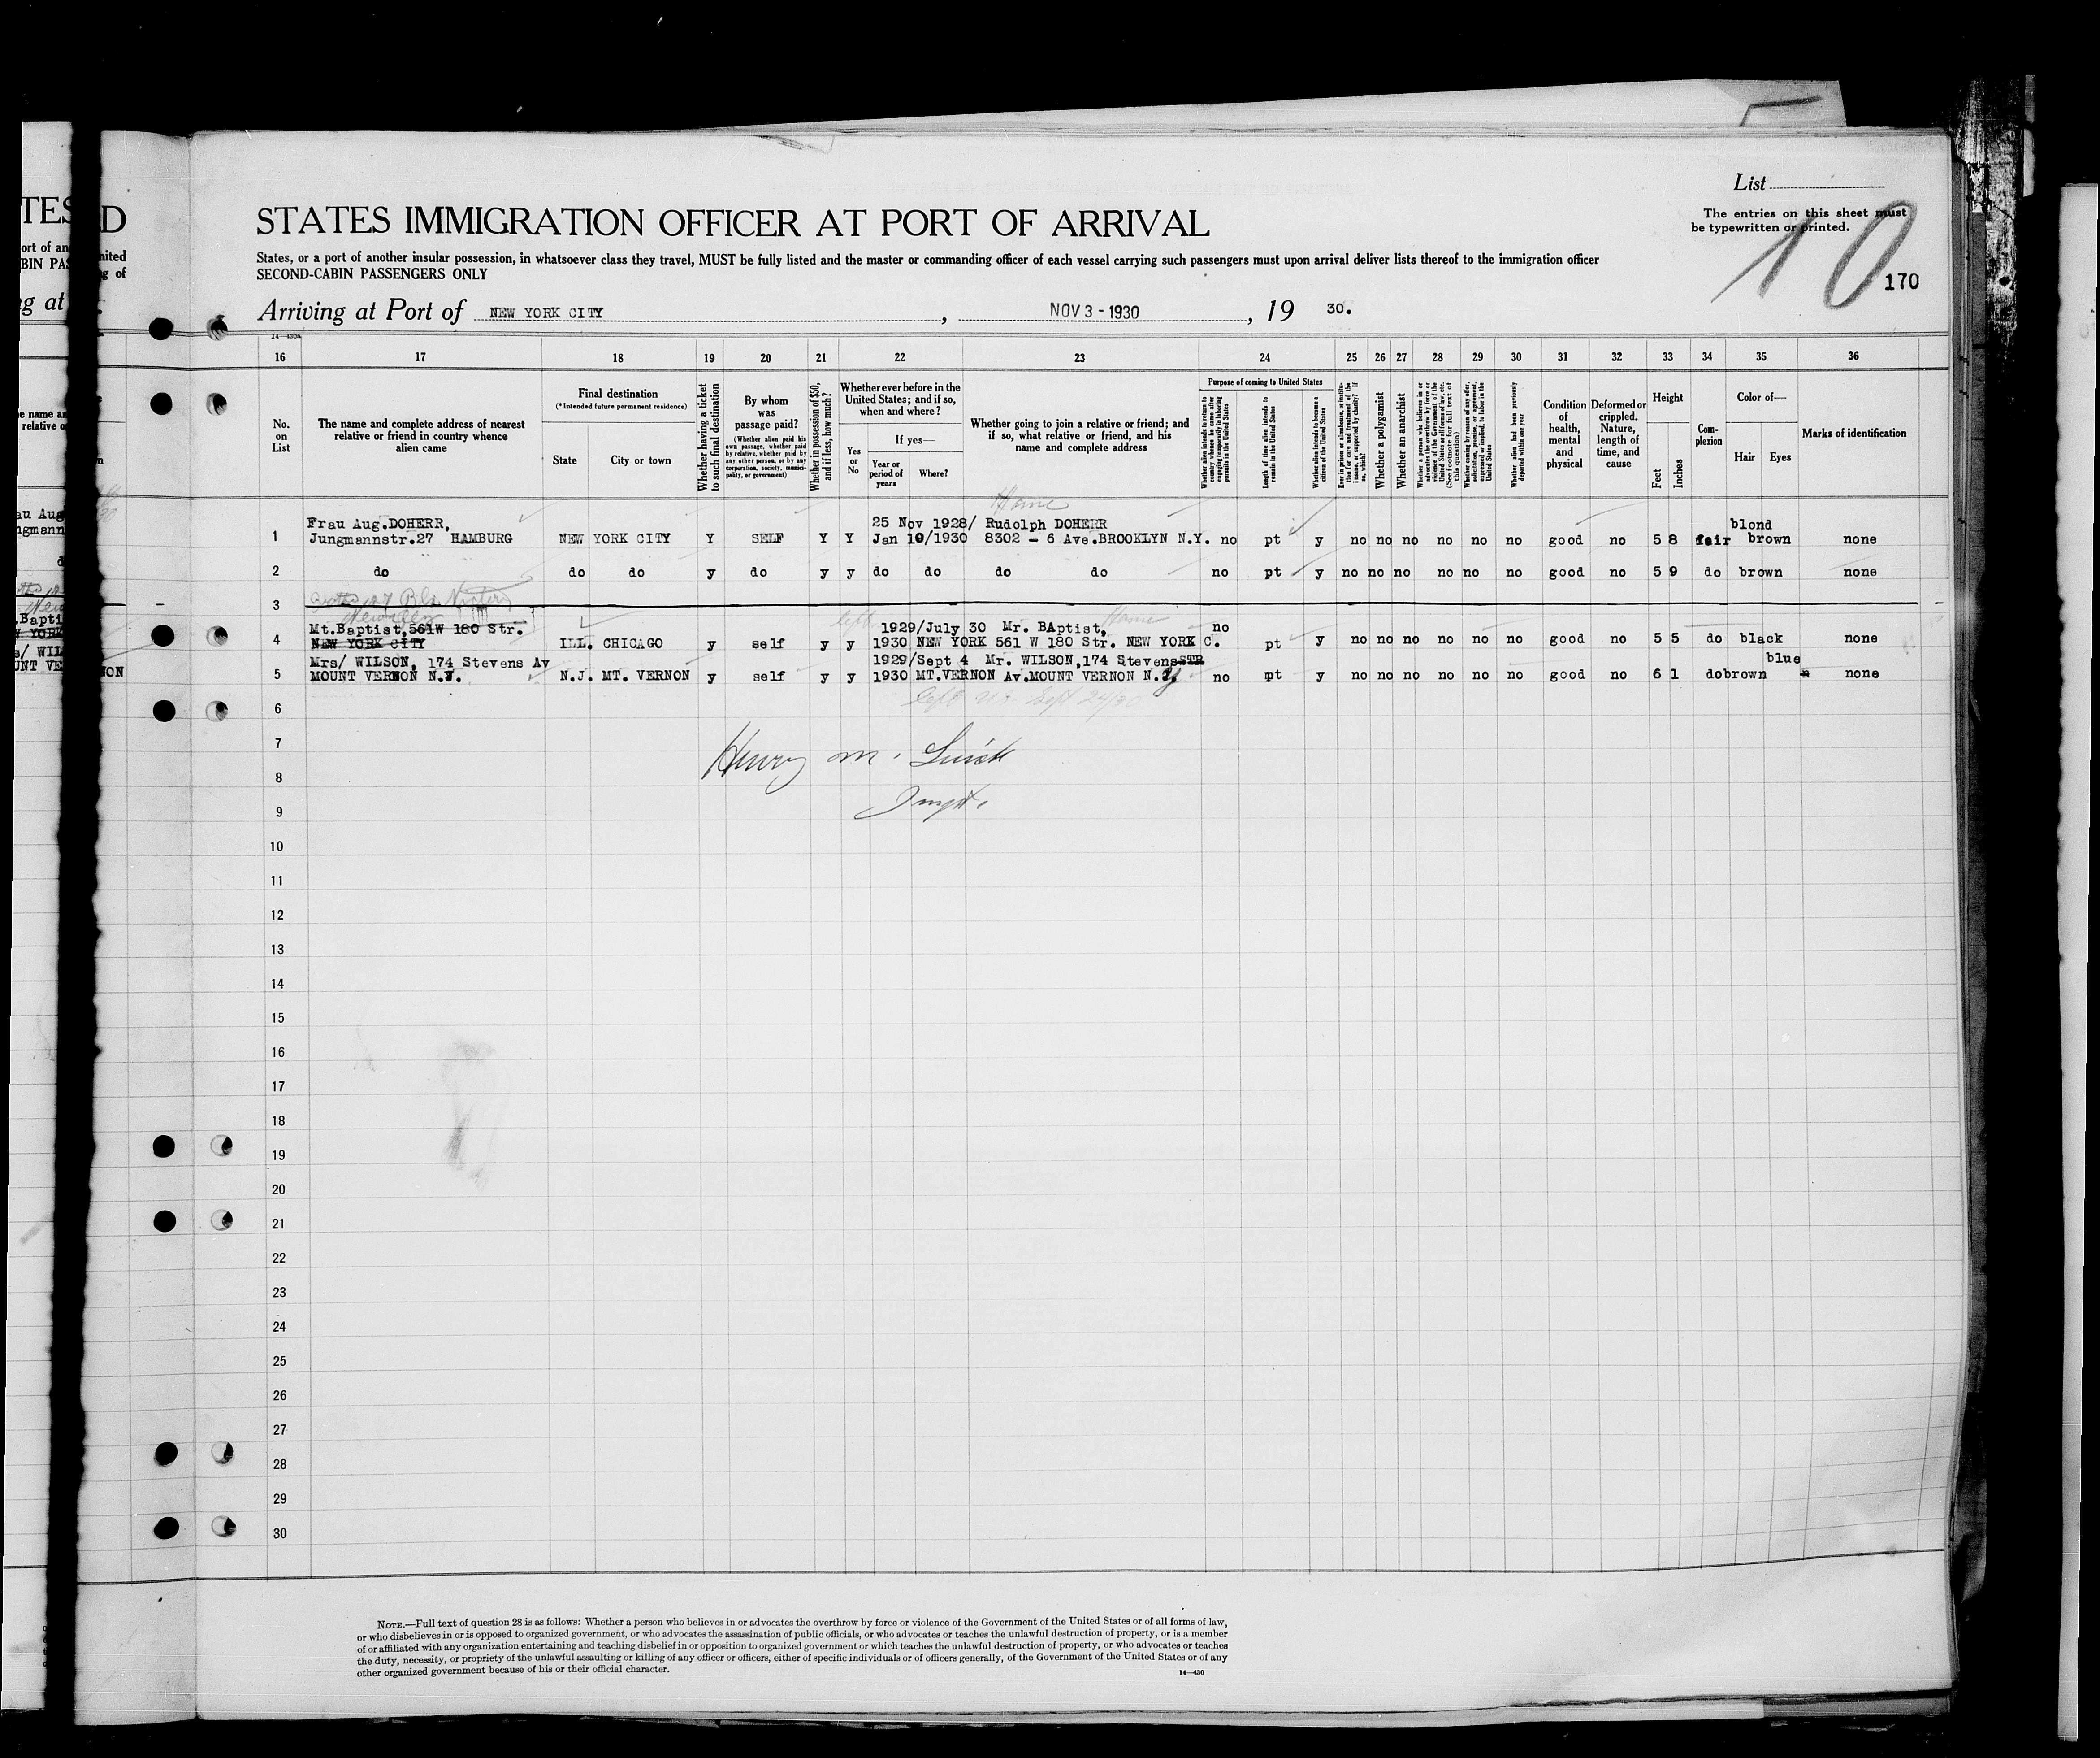 List
The entries on this sheet must
be typewritten or printed.
10
170
STATES IMMIGRATION OFFICER AT PORT OF ARRIVAL
States, or a port of another insular possession, in whatsoever class they travel, MUST be fully listed and the master or commanding officer of each vessel carrying such passengers must upon arrival deliver lists thereof to the immigration officer
SECOND-CABIN PASSENGERS ONLY
Arriving at Port of NEW YORK CITY , NOV 3 - 1930 , 19 30.
16 17 18 19 20 21 22 23 24 25 26 27 28 29 30 31 32 33 34 35 36
No. on List
The name and complete address of nearest relative or friend in country whence alien came
Final destination
(*Intended future permanent residence)
State City or town
Whether having a ticket to such final destination
By whom was passage paid?
(Whether alien paid his own passage, whether paid by relative, whether paid by any other person, or by any corporation, society, municipality, or government)
Whether in possession of $50, and if less, how much?
Whether ever before in the United States; and if so, when and where?
Yes or No
If yes—
Year or period of years Where?
Whether going to join a relative or friend; and if so, what relative or friend, and his name and complete address
Purpose of coming to United States
Length of time alien intends to remain in the United States
Whether alien intends to become a citizen of the United States
Whether a polygamist
Whether an anarchist
Whether alien had been previously deported within one year
Condition of health, mental and physical
Deformed or crippled. Nature, length of time, and cause
Height
Feet Inches
Complexion
Color of—
Hair Eyes
Marks of identification
Home
Frau Aug.DOHERR, 25 Nov 1928/ Rudolph DOHERR blond
1 Jungmannstr.27 HAMBURG NEW YORK CITY Y SELF Y Y Jan 10/1930 8302 - 6 Ave.BROOKLYN N.Y. no pt y no no no no no no good no 5 8 fair brown none
2 do do do y do y y do do do do no pt y no no no no no no good no 5 9 do brown none
3
Mt.Baptist,561W 180 Str. left 1929/July 30 Mr. BAptist, Home no
4 NEW YORK CITY ILL. CHICAGO y self y y 1930 NEW YORK 561 W 180 Str. NEW YORK C. pt y no no no no no no good no 5 5 do black none
Mrs/ WILSON, 174 Stevens Av 1929/Sept 4 Mr. WILSON,174 Stevens STR blue
5 MOUNT VERNON N.Y. N.J. MT. VERNON y self y y 1930 MT.VERNON Av.MOUNT VERNON N.Y. no pt y no no no no no no good no 6 1 do brown none
6 left U.S. Sept 24/30
7
Henry M.
8
9
10
11
12
13
14
15
16
17
18
19
20
21
22
23
24
25
26
27
28
29
30
NOTE.—Full text of question 28 is as follows: Whether a person who believes in or advocates the overthrow by force or violence of the Government of the United States or of all forms of law,
or who disbelieves in or is opposed to organized government, or who advocates the assassination of public officials, or who advocates or teaches the unlawful destruction of property, or is a member
of or affiliated with any organization entertaining and teaching disbelief in or opposition to organized government or which teaches the unlawful destruction of property, or who advocates or teaches
the duty, necessity, or propriety of the unlawful assaulting or killing of any officer or officers, either of specific individuals or of officers generally, of the Government of the United States or of any
other organized government because of his or their official character.
14—430